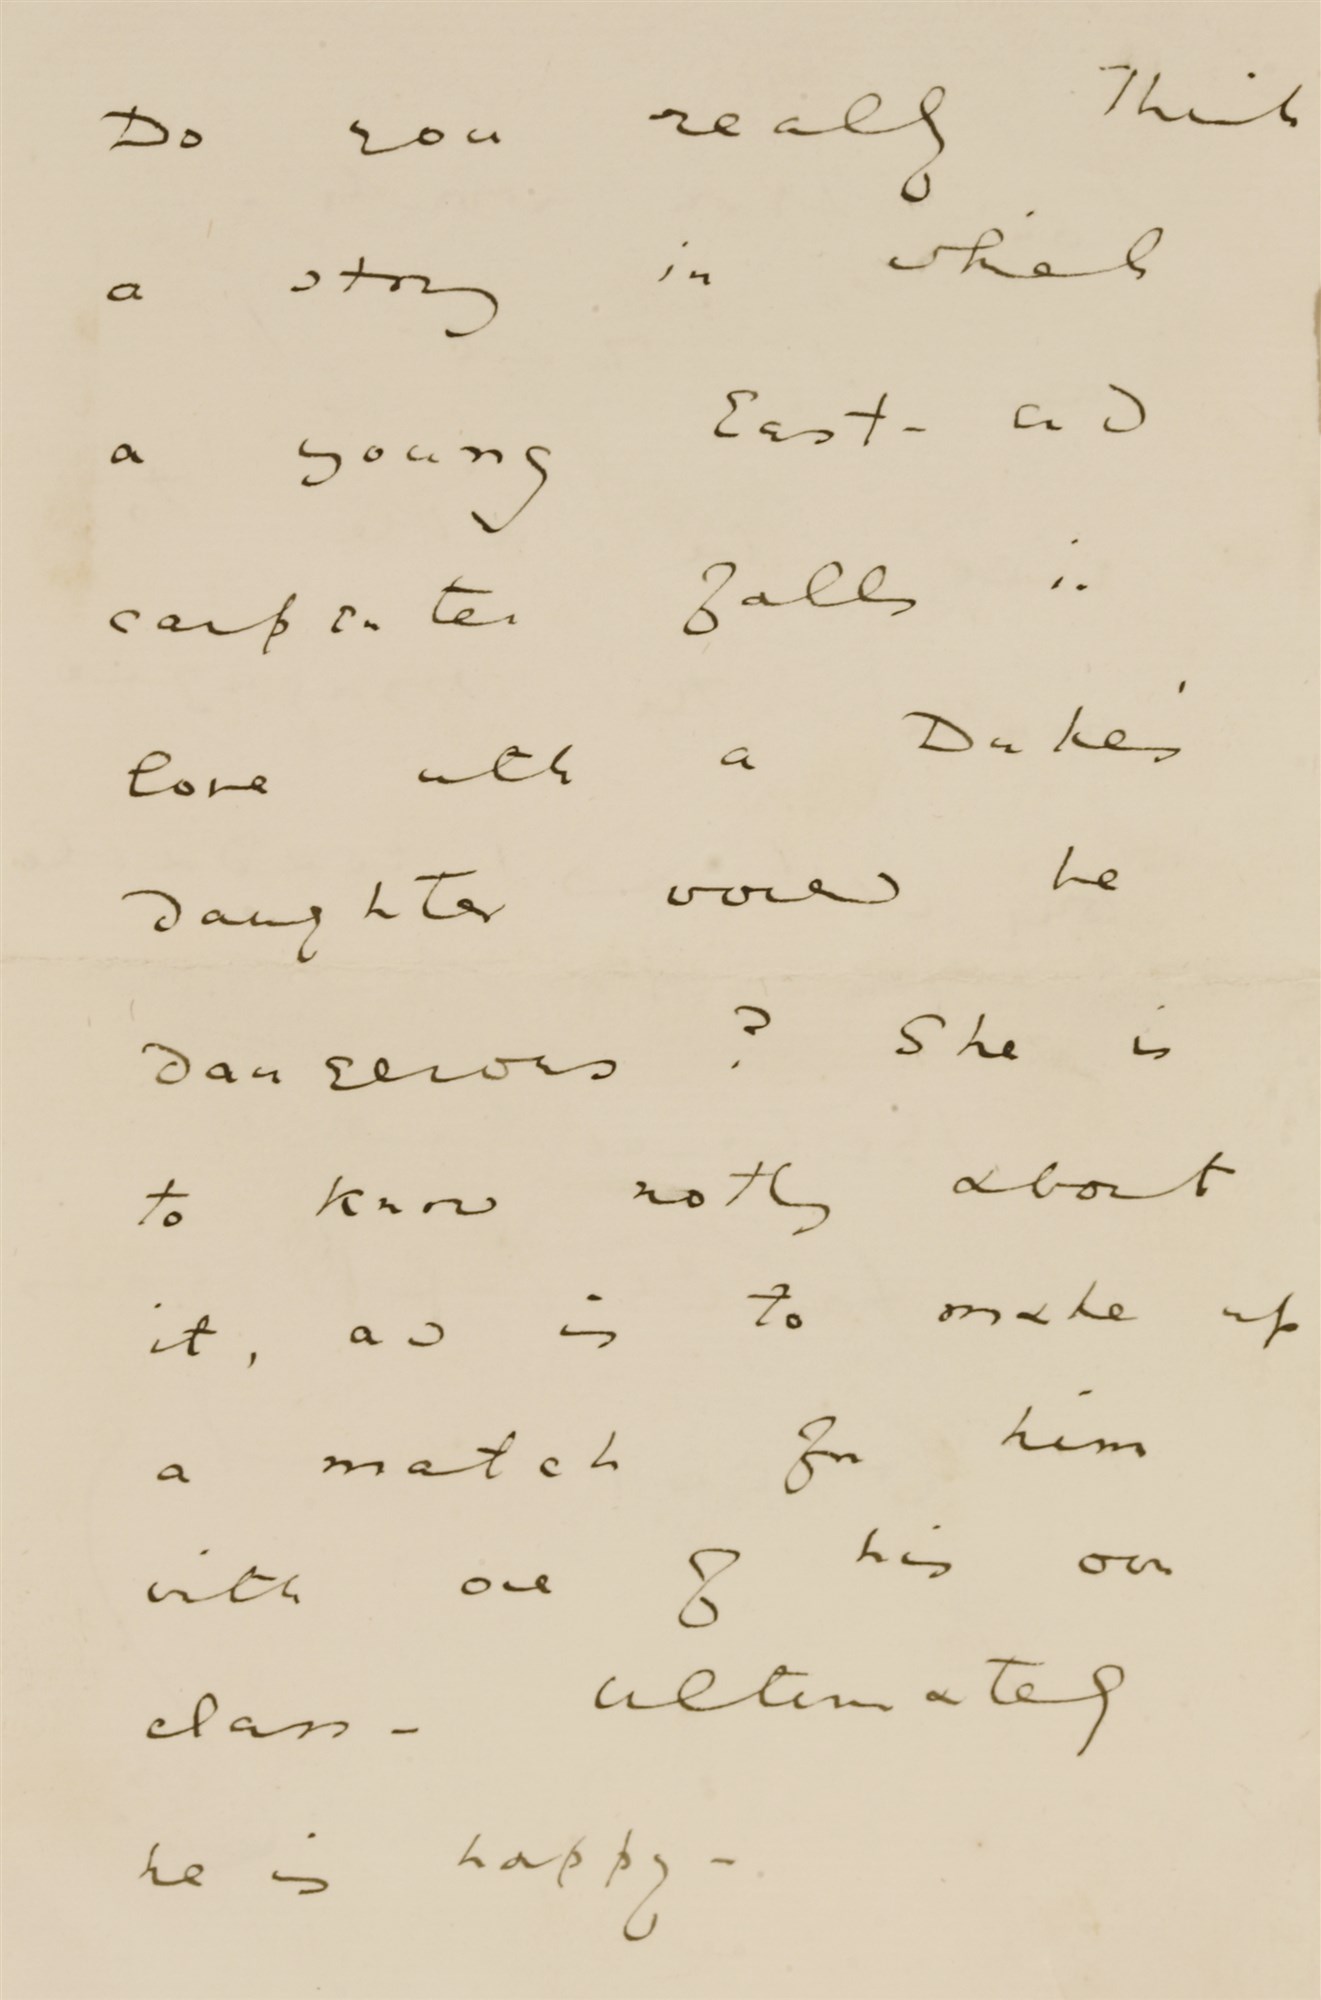 Do you really think
a story in which
a young East-end
carpenter falls in
love with a Duke's
daughter would be
dangerous? She is
to know nothing about
it, and is to make up
a match for him
with one of his own
class- ultimately
he is happy-